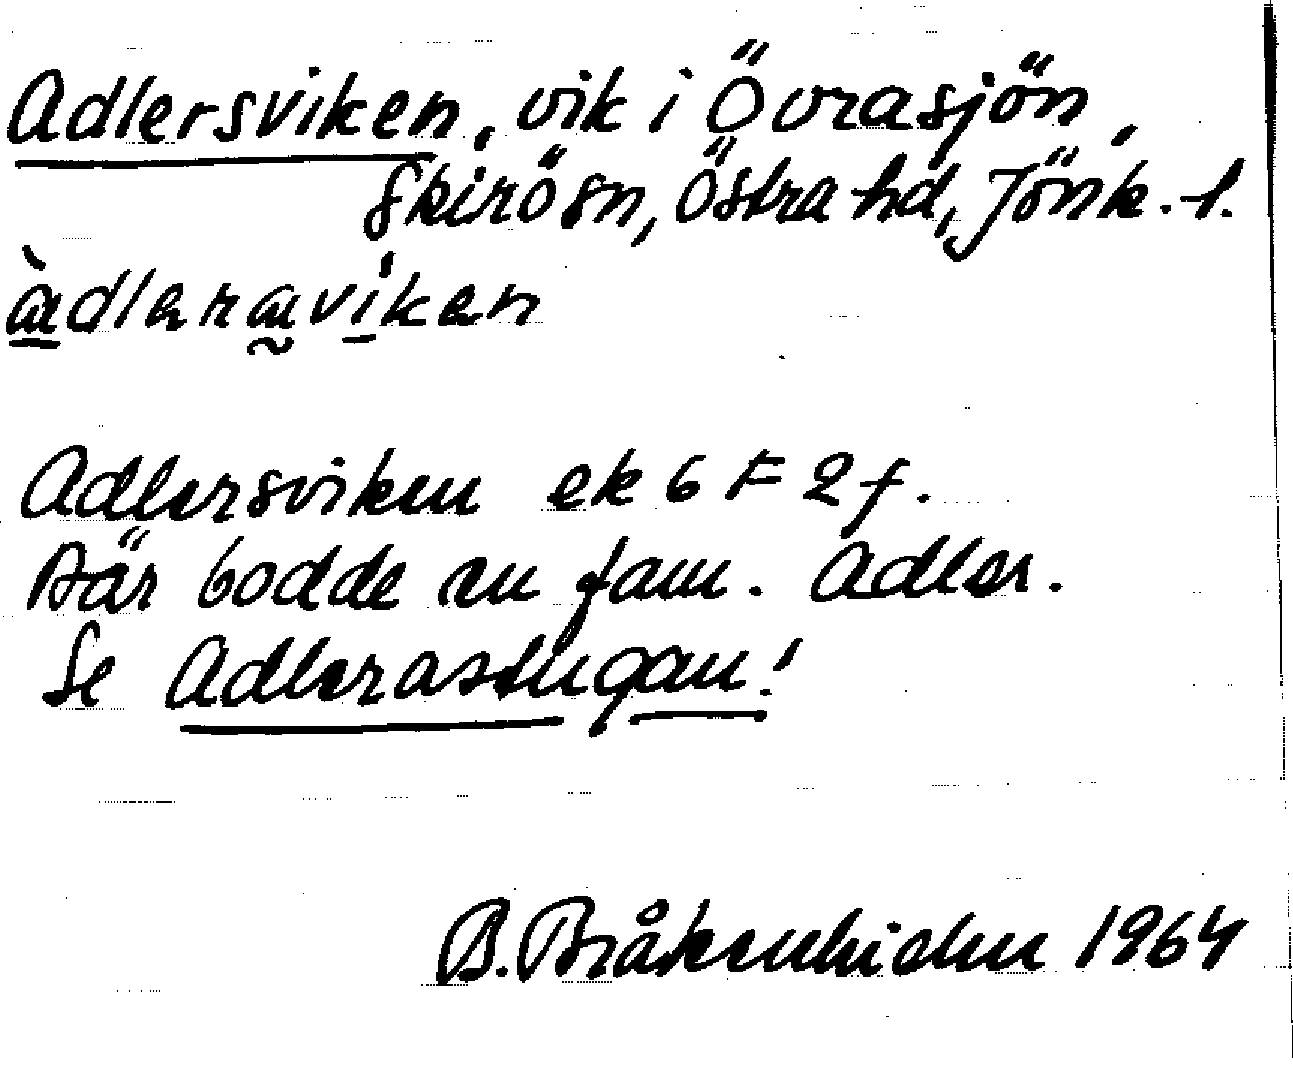 Adlersviken, vik i Övrasjön,
Skirösn, Östra hd, Jönk.-l.
àdleraviken
Adlersviken ek 6 F 2 f.
Där bodde en fam. Adler.
Se Adlerastugan!
B. 1964